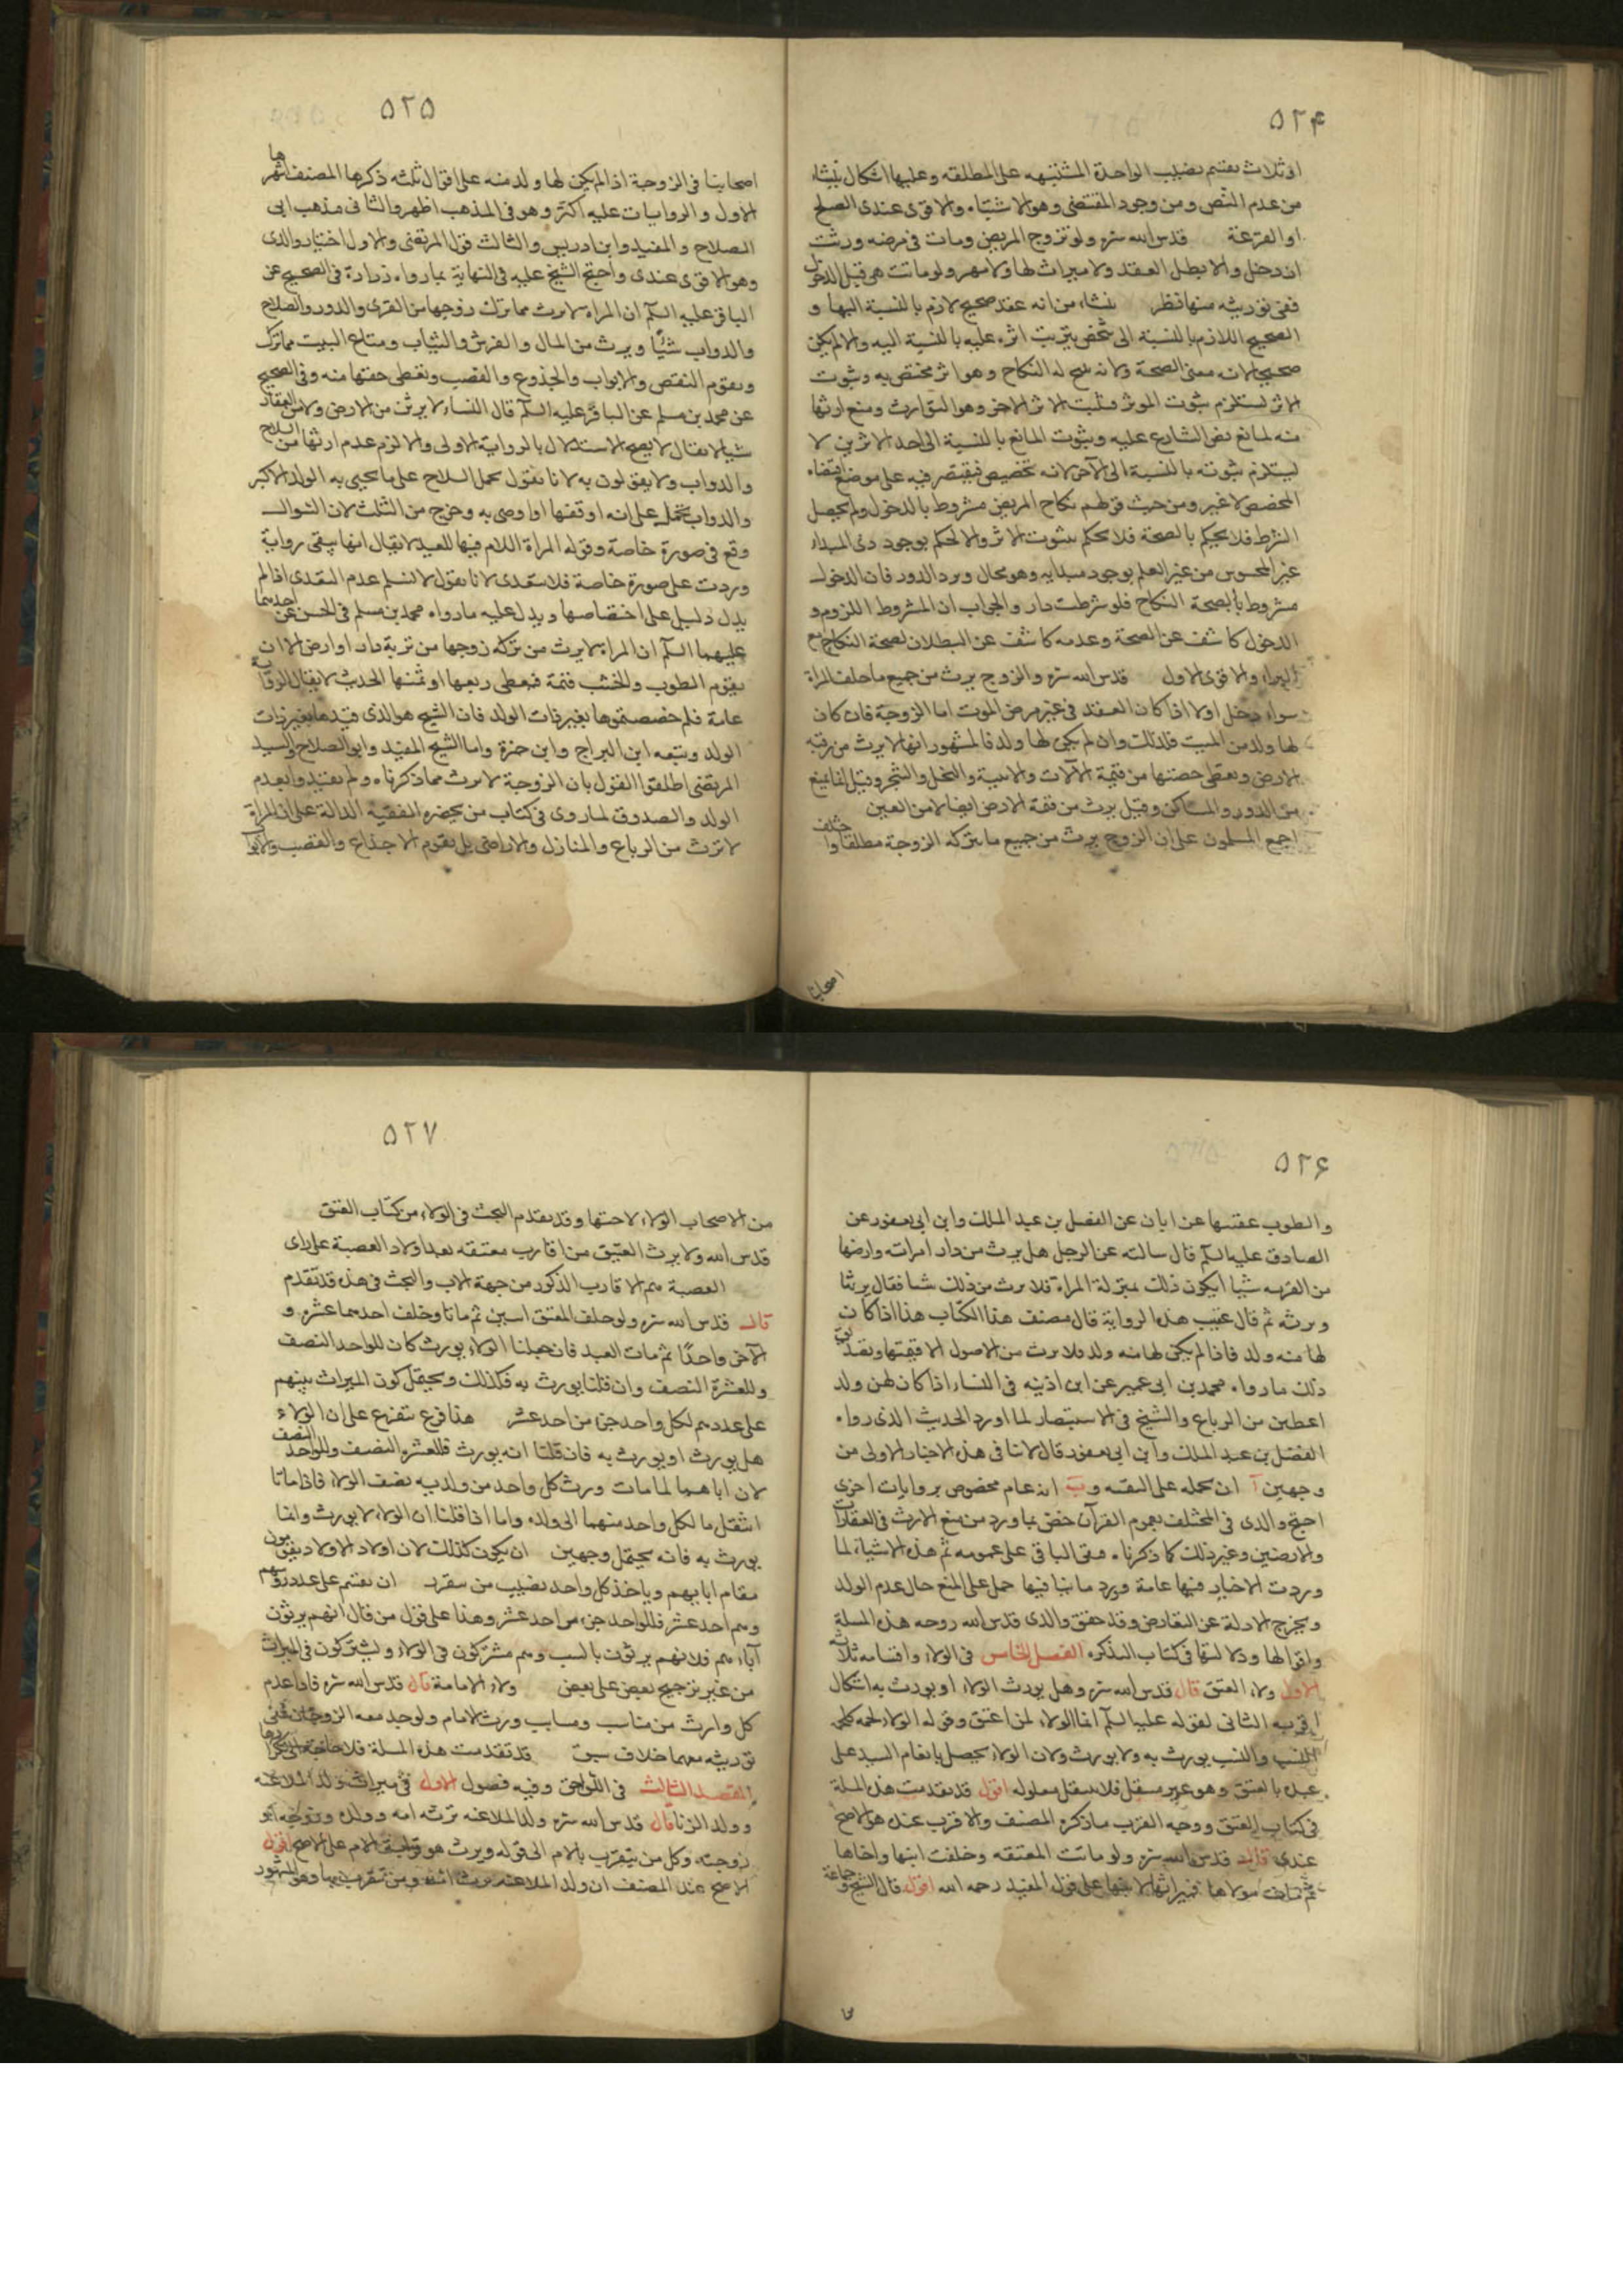 ٥٢۴
او ثلاث يقسم نصيب الواحدة المشتبهه على المطلقه وعليها اشكال ينشاء
من عدم النص ومن وجود المقتضى وهو الاشتباه والاقوى عندى الصلح
او القرعة قدس الله سره ولو تزوج المريض ومات فى مرضه ورثت
ان دخل والا بطل العقد ولا ميراث لها ولا مهر ولو ماتت هى قبل الدخول
ففى توريثه منها نظر ينشاء من انه عقد صحيح لازم بالنسبة اليها و
الصحيح اللازم بالنسبة الى شخص يترتب اثره عليه بالنسبة اليه والا لم يكن
صحيحا لانه معنى الصحة ولانه له النكاح وهو اثر مختص به وثبوت
الاثر يستلزم ثبوت الموثر فثبت الاثر الاخر وهو التوارث ومنع ارثها
منه لمانع نص الشارع عليه وثبوت المانع بالنسبة الى احد الاثرين لا
يستلزم ثبوته بالنسبة الى الآخر لانه تخصيص فيقتصر فيه على موضع اقتضاء
المخصص لا غير ومن حيث قولهم نكاح المريض مشروط بالدخول ولم يحصل
الشرط فلا يحكم بالصحة فلا يحكم بثبوت الاثر والا لحكم بوجود ذى المبداء
غير المحسوس من غير العلم بوجود مبدايه وهو محال ويرد الدور فان الدخول
مشروط بالصحة النكاح فلو شرطت دار والجواب ان المشروط اللزوم و
الدخول كاشف عن الصحة وعدمه كاشف عن البطلان لصحة النكاح مع
البراء والاقوى الاول قدس الله سره والزوج يرث من جميع ما خلفت المراة
سواء دخل اولا اذا كان العقد فى غير مرض الموت اما الزوجة فان كان
لها ولد من الميت فكذلك وان لم يكن لها ولد فالمشهور انها لا يرث من رقبه
الارض ويعطى حصتها من قيمة الآلات والابنية والنخل والشجر وقيل انما يمنع
من الدور والمساكن وقيل يرث من قيمة الارض ايضا لا من العين
اجمع المسلمون على ان الزوج يرث من جميع ما يتركه الزوجة مطلقا واختلف
اصحابنا
٥٢٥
اصحابنا فى الزوجة اذا لم يكن لها ولد منه على اقوال ثلثه ذكرها المصنف اشهرها
الاول والروايات عليه اكثر وهو فى المذهب اظهر والثانى مذهب ابى
الصلاح والمفيد وابن ادريس والثالث قول المرتضى والاول اختيار والدى
وهو الاقوى عندى واحتج الشيخ عليه فى النهاية بما رواه زرارة فى الصحيح عن
الباقر عليه السلم ان المراة لا يرث مما ترك زوجها من القرى والدور والسلاح
والدواب شيئا ويرث من المال والفرش والثياب ومتاع البيت مما ترك
ويقوم النقض والابواب والجذوع والقصب ويعطى حقها منه وفى الصحيح
عن محمد بن مسلم عن الباقر عليه السلم قال النساء لا يرثن من الارض ولا من العقار
شيا لا يقال لا يصح الاستدلال بالرواية الاولى والا لزم عدم ارثها من السلاح
والدواب ولا يقولون به لانا نقول يحمل السلاح على ما يحبى به الولد الاكبر
والدواب يحمل على انه اوقفها او اوصى به وخرج من الثلث لان السوال
وقع فى صورة خاصة وقوله المراة اللام فيها للعهد لا يقال انها يبقى رواية
وردت على صورة خاصة فلا يتعدى لانا نقول لا نسلم عدم التعدى اذا لم
يدل دليل على اختصاصها ويدل عليه ما رواه محمد بن مسلم فى الحسن عن احدهما
عليهما السلم ان المراة لا يرث من تركة زوجها من تربة دار او ارض الا ان
يقوم الطوب والخشب قيمة فيعطى ربعها او ثمنها الحديث لا يقال الرواية
عامة فلم خصصتموها بغير ذات الولد فان الشيخ هو الذى قيدها بغير ذات
الولد وتبعه ابن البراج وابن حمزة واما الشيخ المفيد وابو الصلاح والسيد
المرتضى اطلقوا القول بان الزوجية لا يرث مما ذكرناه ولم يقيدوا بعدم
الولد والصدوق لما روى فى كتاب من يحضره الفقيه الدالة على ان المراة
لا ترث من الرباع والمنازل والاراضى بل يقوم الاجذاع والقصب والابواب
٥٢۶
والطوب عقبها عن ابان عن الفضل بن عبد الملك وابن ابى يعفور عن
الصادق عليه السلم قال سالته عن الرجل هل يرث من دار امراته وارضها
من التربه شيا ايكون ذلك بمنزلة المراة فلا يرث من ذلك شيا فقال يرثها
وترثه ثم قال عقيب هذه الرواية قال مصنف هذا الكتاب هذا اذا كان
لها منه ولد فاذا لم يكن لها منه ولد فلا يرث من الاصول الا قيمتها وتصديق
ذلك ما رواه محمد بن ابى عمير عن ابن اذينه فى النساء اذا كان لهن ولد
اعطين من الرباع والشيخ فى الاستبصار لما اورد الحديث الذى رواه
الفضل بن عبد الملك وابن ابى يعفور قال لا تنافى هذه الاخبار الاولى من
وجهين آ ان نحمله على التقيه و ب انه عام مخصوص بروايات اخرى
احتج والدى فى المختلف بعموم القرآن خص بما ورد من منع الارث فى العقارات
والارضين وغير ذلك كما ذكرناه فبقى الباقى على عمومه ثم هذه الاشياء لما
وردت الاخبار فيها عامة وورد ما ينافيها حمل على المنع حال عدم الولد
ويخرج الادلة عن التعارض وقد حقق والدى قدس الله روحه هذه المسلة
واقوالها ودلايلها فى كتاب التذكره الفصل الخامس فى الولاء واقسامه ثلاثه
الاول ولاء العتق قال قدس الله سره وهل يورث الولاء او يورث به اشكال
اقربه الثانى لقوله عليه السلم انما الولاء لمن اعتق وقوله الولاء لحمه كلحمه
النسب والنسب يورث به ولا يورث ولان الولاء يحصل بانعام السيد على
عبده بالعتق وهو غير منتقل فلا ينتقل معلوله اقول قد تقدمت هذه المسلة
فى كتاب العتق ووجه القرب ما ذكره المصنف والاقرب عنده هو الاصح
عندى قال قدس الله سره ولو ماتت المعتقه وخلفت ابنها واخاها
ثم مات مولاها فميراثها لابنها على قول المفيد رحمه الله اقول قال الشيخ وجماعة
من
٥٢٧
من الاصحاب الولاء لاختها وقد تقدم البحث فى الولاء من كتاب العتق
قدس الله ولا يرث العتيق من اقارب معتقه بعد اولاد العصبة على راى
العصبة هم الاقارب الذكور من جهة الاب والبحث فى هذه قد تقدم
قال قدس الله سره ولو خلف المعتق ابنين ثم ماتا وخلف احدهما عشره و
الآخر واحدا ثم مات العبد فان جعلنا الولاء يورث كان للواحد النصف
وللعشرة النصف وان قلنا يورث به فكذلك ويحتمل كون الميراث بينهم
على عددهم لكل واحد جزء من احد عشر هذا فرع تفرع على ان الولاء
هل يورث او يورث به فان قلنا انه يورث فللعشره النصف وللواحد النصف
لان اباهما لما مات ورث كل واحد من ولديه نصف الولاء فاذا ماتا
انتقل ما لكل واحد منهما الى ولده واما اذا قلنا ان الولاء لا يورث وانما
يورث به فانه يحتمل وجهين ان يكون كذلك لان اولاد الاولاد يقومون
مقام ابايهم وياخذ كل واحد نصيب من يتقرب ان يقسم على عدد روسهم
وهم احد عشر فللواحد جزء من احد عشر وهذا على قول من قال انهم يرثون
آباءهم فلانهم يرثون بالنسب وهم مشتركون فى الولاء ويشتركون فى الميراث
من غير ترجيح لبعض على بعض ولاء الامامة قال قدس الله سره فاذا عدم
كل وارث من مناسب ومسابب ورث الامام ولو وجد معه الزوجان ففى
توريثه معهما خلاف سبق قد تقدمت هذه المسلة فلا حاجة الى تكرارها
المقصد الثالث فى اللواحق وفيه فصول الاول فى ميراث ولد الملاعنه
وولد الزنا قال قدس الله سره ولد الملاعنه ترثه امه وولده وزوجه او
زوجته وكل من يتقرب بالام الى قوله ويرث هو قرابة الام على الاصح اقول
الاصح عند المصنف ان ولد الملاعنه يرث امه ومن يتقرب بها وهو المشهور